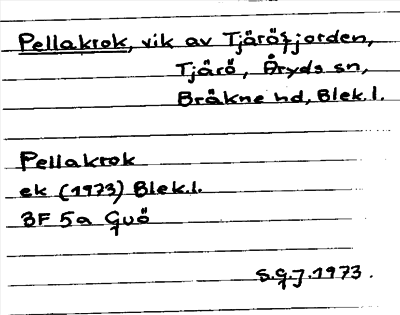 Pellakrok, vik av Tjäröfjorden,
Tjärö, Åryds sn,
Bräkne hd, Blek.l.
Pellakrok
ek (1973) Blek.l.
3F 5a Guö
S.G.J. 1973.